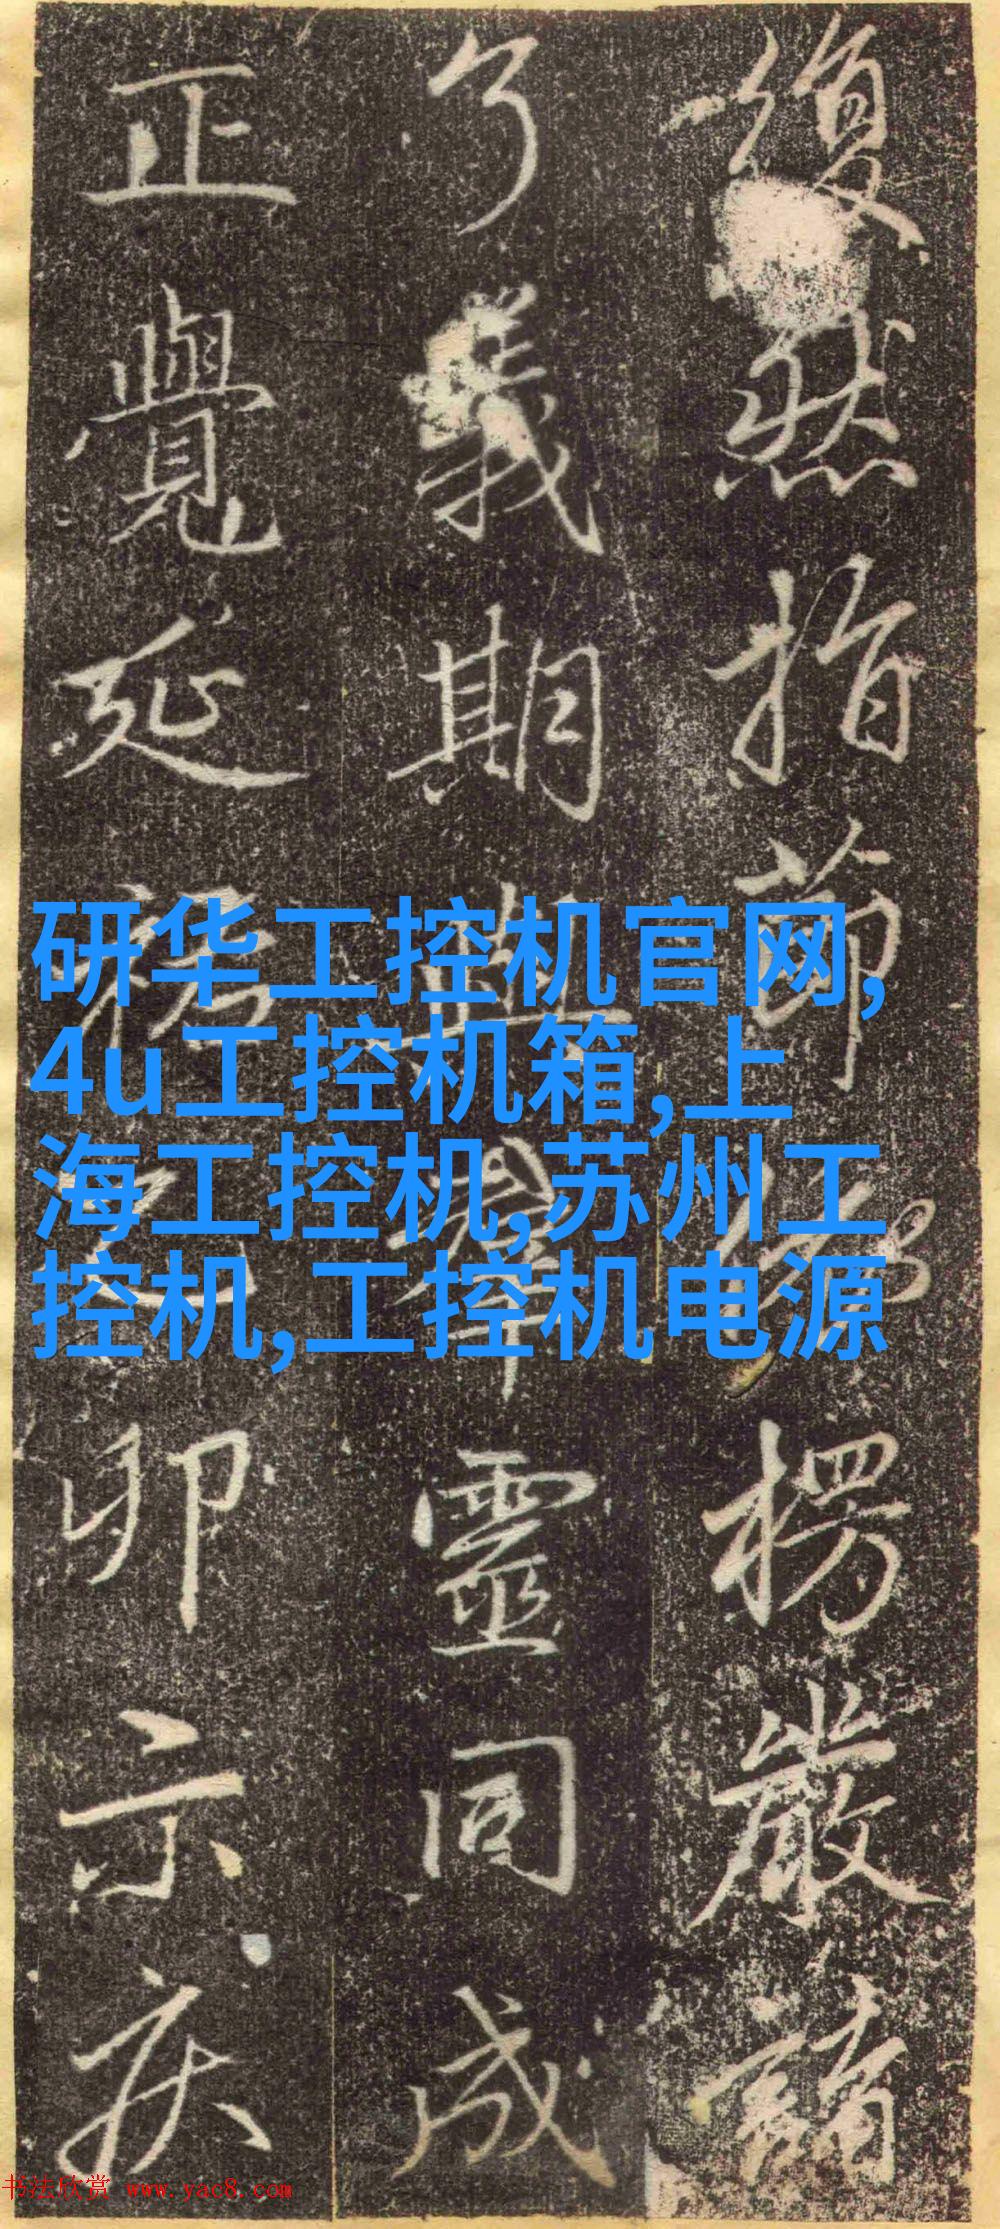 復然指節修楞嚴誦
了義期與羣靈同成
正覺延
卯示疾
研华工控机官网,
4u工控机箱,上
海工控机,苏州工
控机,工控机电源
书法欣赏 www.yac8.com